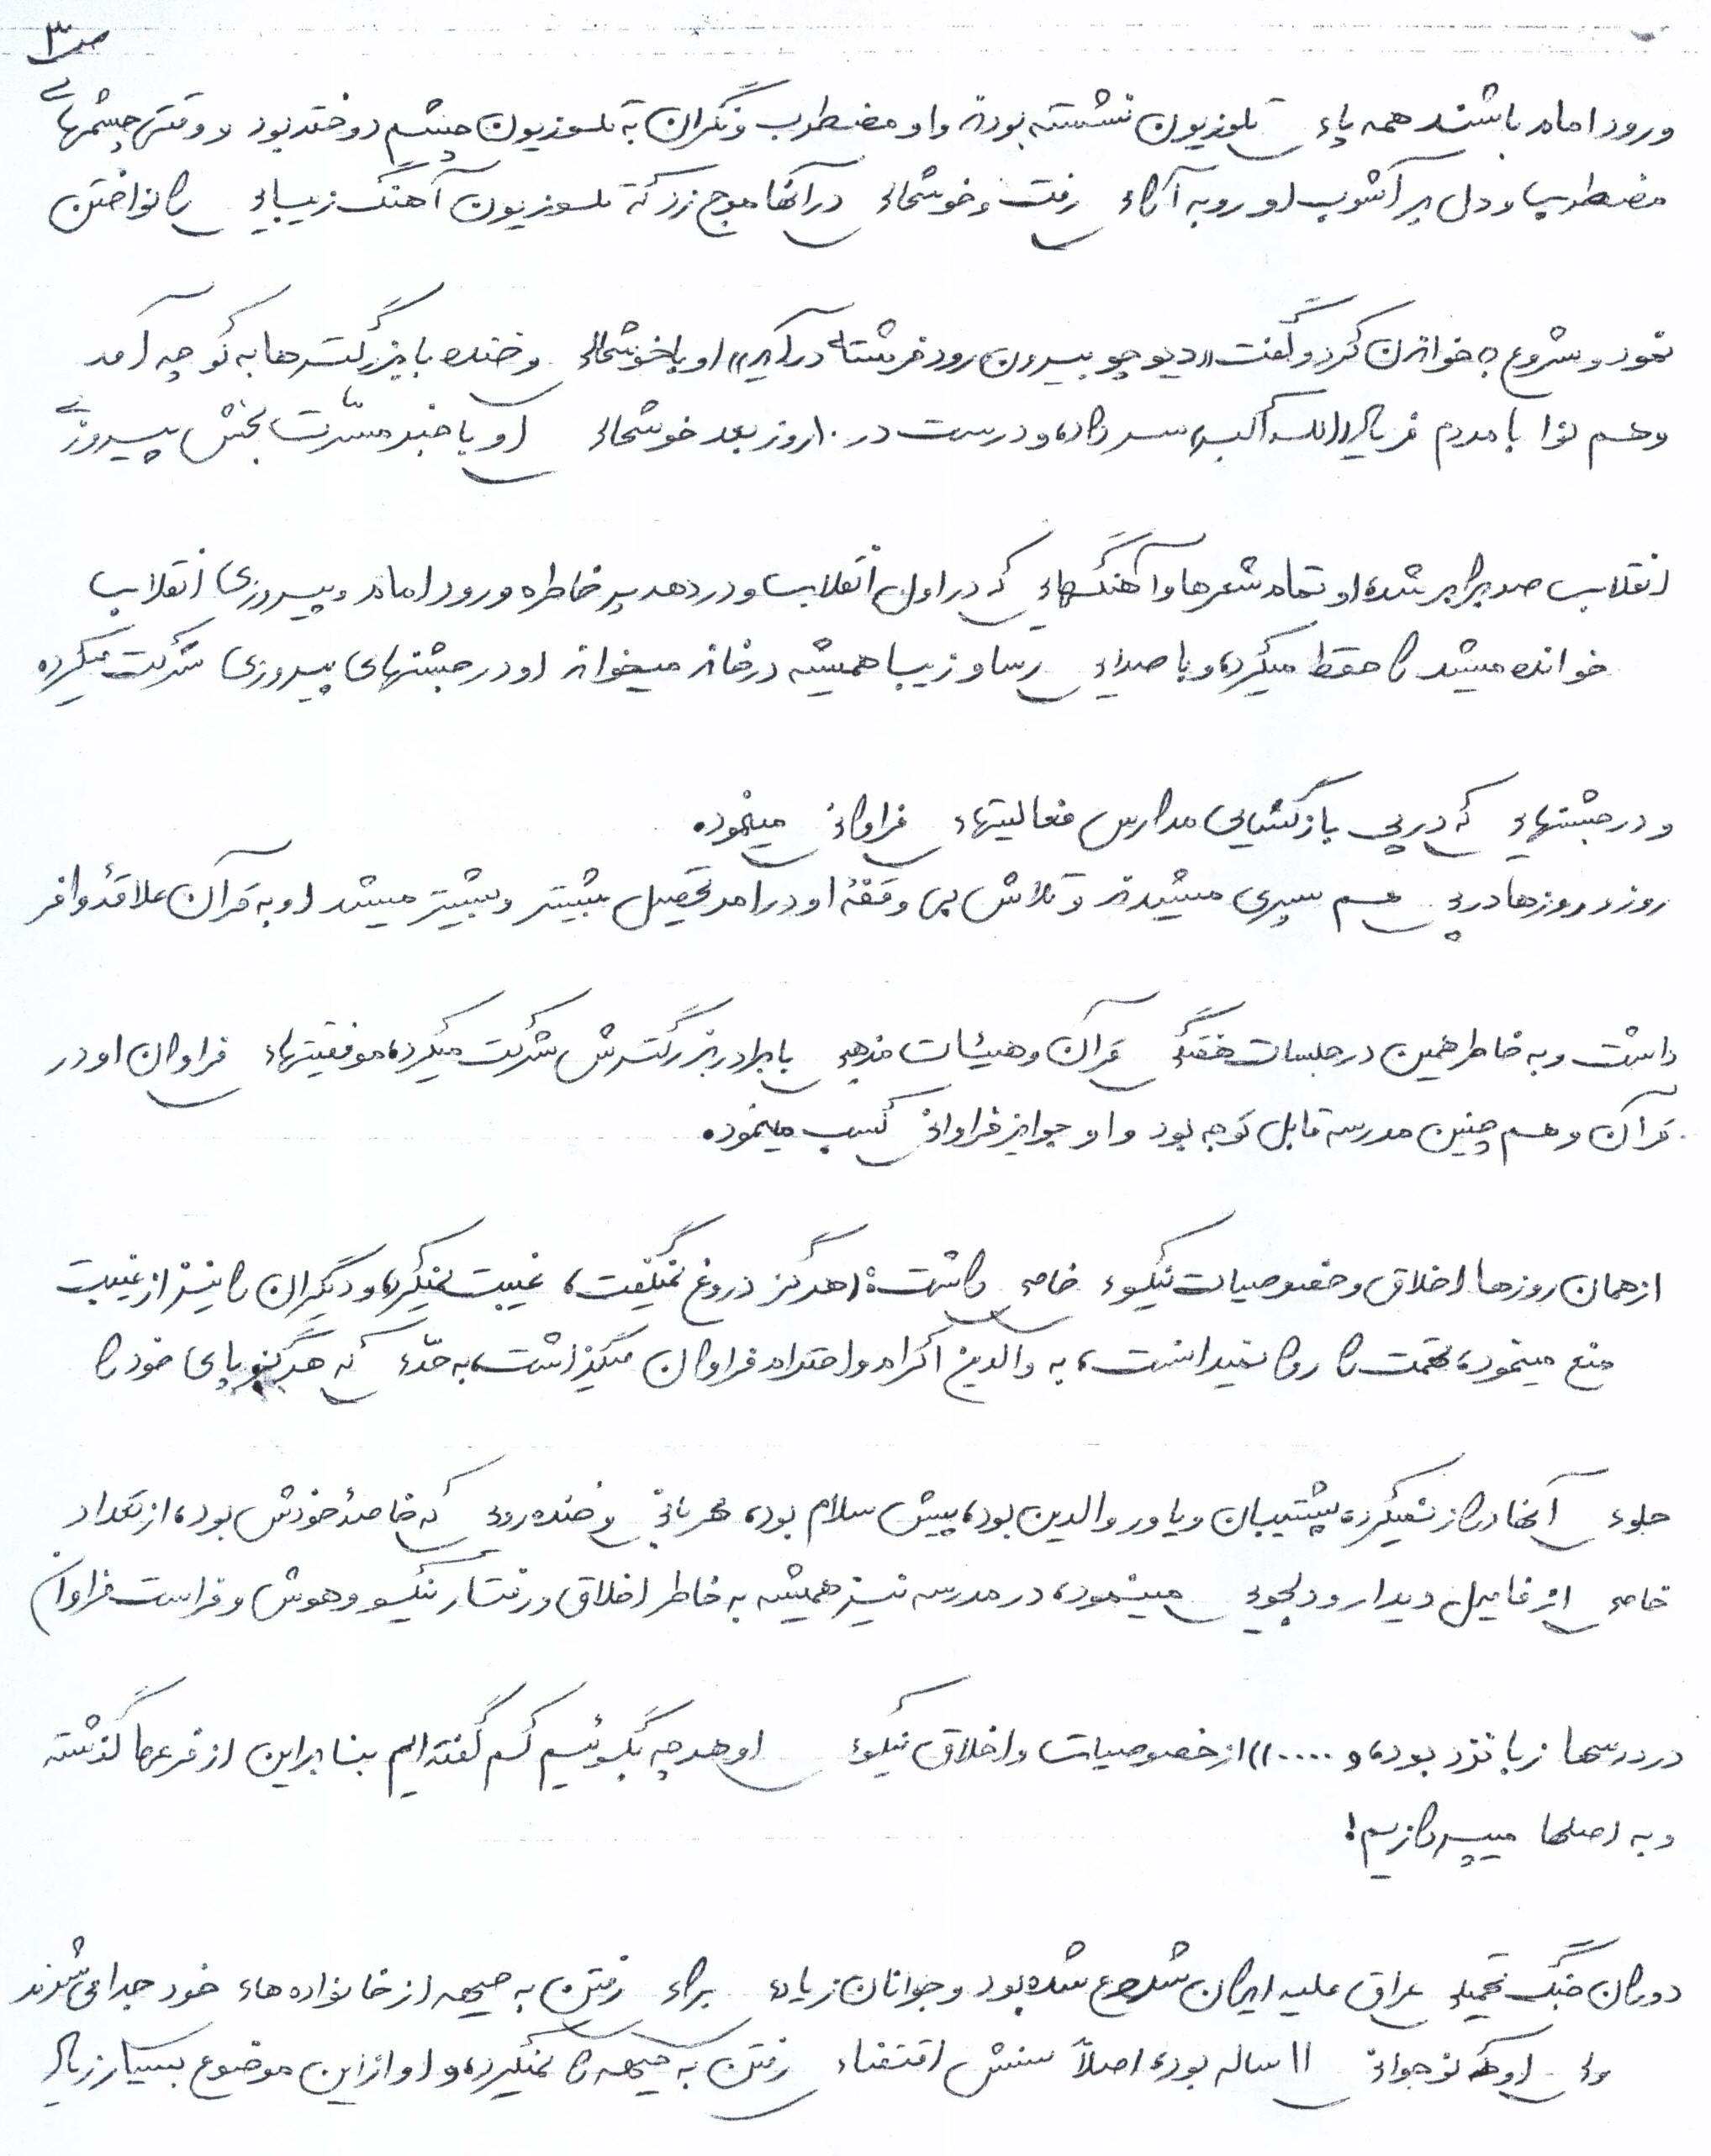 ص ۳
ورود امام باشند همه پای تلوزیون نشسته بودند و او مضطرب و نگران به تلوزیون چشم دوخته بود و وقتی چشمهای
مضطرب و دل پر آشوب او رو به آرامی رفت و خوشحالی در آنها موج زد که تلوزیون آهنگ زیبایی را نواختن
نمود و شروع به خواندن کرد و گفت «دیو چو بیرون رود فرشته درآید» او با خوشحالی و خنده با بزرگترها به کوچه آمد
و هم نوا با مردم فریاد «الله اکبر» سر داد، و درست در ۱۰ روز بعد خوشحالی او با خبر مسّرت بخش پیروزی
انقلاب صد برابر شد، او تمام شعرها و آهنگهایی که در اول انقلاب و در دهه پر خاطره ورود امام و پیروزی انقلاب
خوانده میشد را حفظ میکرد، و با صدایی رسا و زیبا همیشه در خانه میخواند او در جشنهای پیروزی شرکت میکرد
و در جشنهایی که در پی بازگشایی مدارس فعالیتهای فراوانی مینمود.
روز و روزها در پی هم سپری میشدند و تلاش بی وقفهٔ او در امر تحصیل بیشتر و بیشتر میشد او به قرآن علاقهٔ وافر
داشت و به خاطر همین در جلسات هفتگی قرآن و هیئات مذهبی با برادر بزرگترش شرکت میکرد، موفقیتهای فراوان او در
قرآن و هم چنین مدرسه قابل توجه بود و او جوایز فراوانی کسب مینمود.
از همان روزها اخلاق و خصوصیات نیکوی خاصی داشت: «هرگز دروغ نمیگفت، غیبت نمیکرد، و دیگران را نیز از غیبت
منع مینمود، تهمت را روا نمیداشت، به والدین اکرام و احترام فراوان میگذاشت، به حدّی که هرگز پای خود را
جلوی آنها دراز نمیکرد، پشتیبان و یاور والدین بود، پیش سلام بود، مهربانی و خنده رویی که خاصهٔ خودش بود، از تعداد
خاصی از فامیل دیدار و دلجویی مینمود، در مدرسه نیز همیشه به خاطر اخلاق و رفتار نیکو و هوش و فراست فراوان
در درسها زبانزد بود، و ....» از خصوصیات و اخلاق نیکوی او هر چه بگوئیم کم گفته ایم بنابراین از فرعها گذشته
و به اصلها میپردازیم!
دوران جنگ تحمیلی عراق علیه ایران شروع شده بود و جوانان زیادی برای رفتن به جبهه از خانواده های خود جدا می شدند
ولی او که نوجوانی ۱۱ ساله بود، اصلاً سنش اقتضای رفتن به جبهه را نمیکرد، و او از این موضوع بسیار زیاد